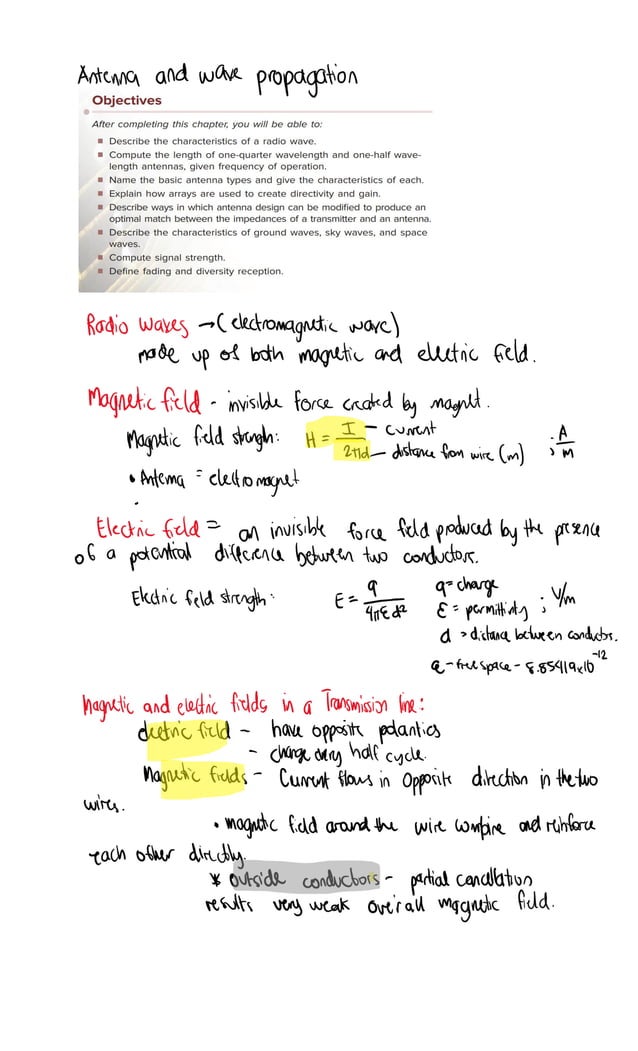 Antenna and wave propagation
Objectives
After completing this chapter, you will be able to:
■ Describe the characteristics of a radio wave.
■ Compute the length of one-quarter wavelength and one-half wave-
length antennas, given frequency of operation.
■ Name the basic antenna types and give the characteristics of each.
■ Explain how arrays are used to create directivity and gain.
■ Describe ways in which antenna design can be modified to produce an
optimal match between the impedances of a transmitter and an antenna.
■ Describe the characteristics of ground waves, sky waves, and space
waves.
■ Compute signal strength.
■ Define fading and diversity reception.
Radio Waves → (electromagnetic wave)
made up of both magnetic and electric field.
Magnetic field - invisible force created by magnet.
Magnetic field strength: H = I / 2πd — current — distance from wire (m) ; A/m
• Antenna = electromagnet
Electric field = an invisible force field produced by the presence
of a potential difference between two conductors.
Electric field strength: E = q / 4πεd² q = charge
ε = permittivity ; V/m
d > distance between conductors.
free space - 8.85419x10⁻¹²
Magnetic and electric fields in a Transmission line:
electric field - have opposite
- change every half cycle.
Magnetic fields - Current flows in opposite direction in the two
wires.
• magnetic field around the wire combine and reinforce
each other directly.
* outside conductors - partial cancellation
results very weak overall magnetic field.